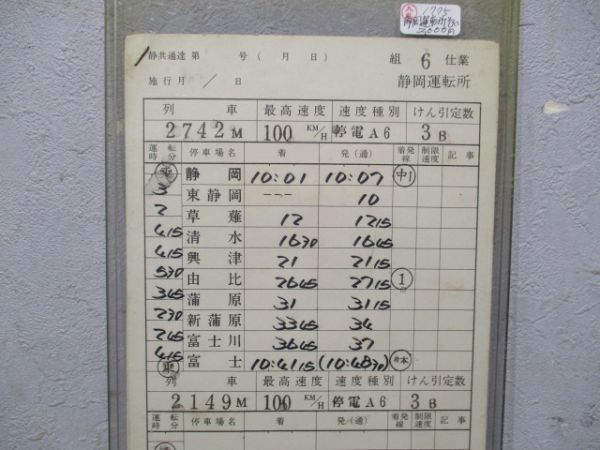 1775
2,000円
静共通達 第 号 ( 月 日) 組 6 仕業
施行月 / 日 静岡運転所
列 車 最高速度 速度種別 けん引定数
2742M 100 KM/H 停電A6 3B
運転時分 停車場名 着 発(通) 着発線 制限速度 記事
静岡 10:01 10:07 中1
3 東静岡 --- 10
2 草薙 12 12 15
4 15 清水 16 30 16 45
4 15 興津 21 21 15
5 30 由比 26 45 27 15 1
3 45 蒲原 31 31 15
2 30 新蒲原 33 45 34
2 45 富士川 36 45 37
4 15 富士 10:41 15 (10:48 30) 本
列 車 最高速度 速度種別 けん引定数
2149M 100 KM/H 停電A6 3B
運転時分 停車場名 着 発(通) 着発線 制限速度 記事